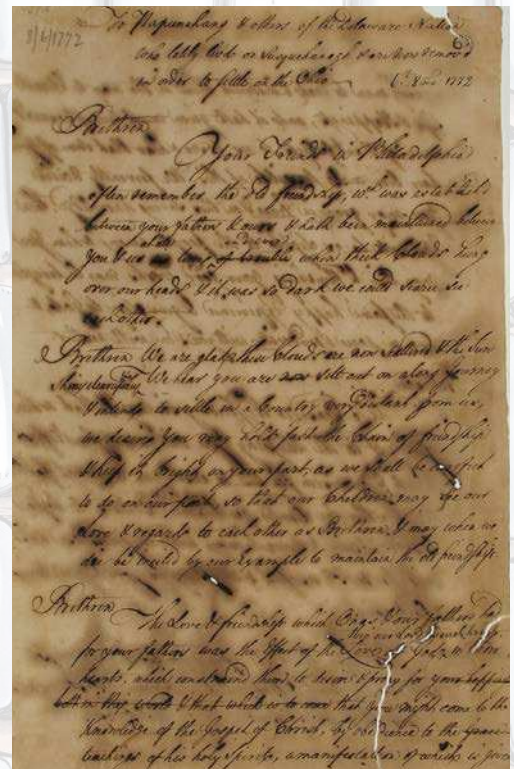 8/6/1772
To Papunehang & others of the Delaware Nation
who lately lived on Susquehanagh & are now removed
in order to settle on the Ohio 1772
Brethren
Your Friends in Philadelphia
often remember the old friendship, wch was establish'd
between your fathers & ours & hath been maintained between
you & us when thick Clouds hung
over our heads & it was so dark we could scarce see
each other.
Brethren We are glad these Clouds are now scattered & the Sun
We hear you are sett out on a long Journey
& intend to settle in a Country very distant from us,
we desire you may hold fast the Chain of friendship
& keep it bright on your part, as we shall
to do on our part so that our Children may see our
love & regards to each other as Brethren & may when we
die be excited by our Example to maintain the old friendship
Brethren The Love & friendship which & our fathers had
for your fathers was the Effect of the Love of God in their
hearts, which constrained them to desire & pray for your happiness
both in this world & that which is to come that you might come to the
Knowledge of the Gospel of Christ, by obedience to the
teachings of his holy Spirit, a manifestation of which is given